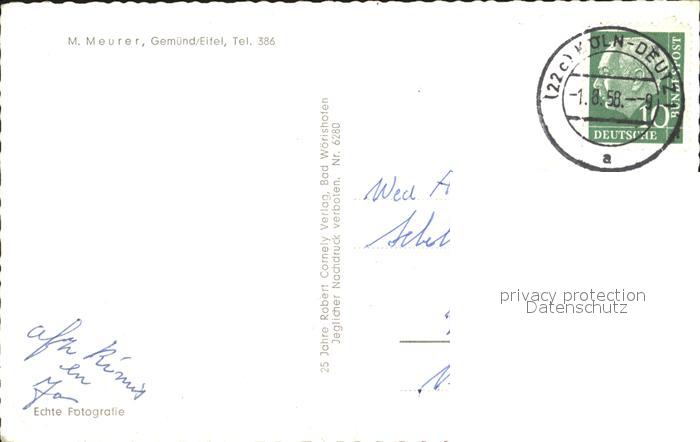 M. Meurer, Gemünd/Eifel, Tel. 386
(22c) KÖLN-DEUTZ
-1.8.58.--9
a
10
BUNDESPOST
DEUTSCHE
25 Jahre Robert Cornely Verlag, Bad Wörishofen
Jeglicher Nachdruck verboten. Nr. 6280
Wed
privacy protection
Datenschutz
en
Echte Fotografie